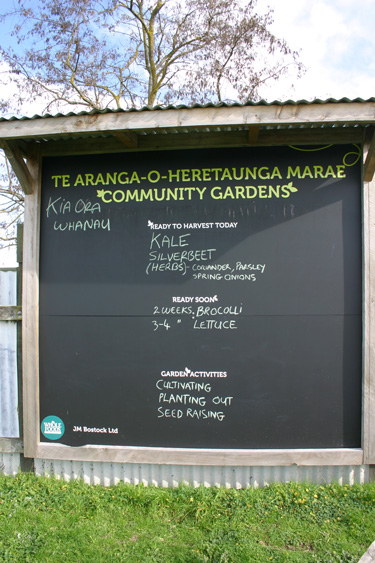 TE ARANGA-O-HERETAUNGA MARAE
COMMUNITY GARDENS
KIA ORA
WHANAU
READY TO HARVEST TODAY
KALE
SILVERBEET
(HERBS)- CORIANDER, PARSLEY
SPRING ONIONS
READY SOON
2 WEEKS, BROCOLLI
3-4 " LETTUCE
GARDEN ACTIVITIES
CULTIVATING
PLANTING OUT
SEED RAISING
WHOLE
FOODS
JM Bostock Ltd